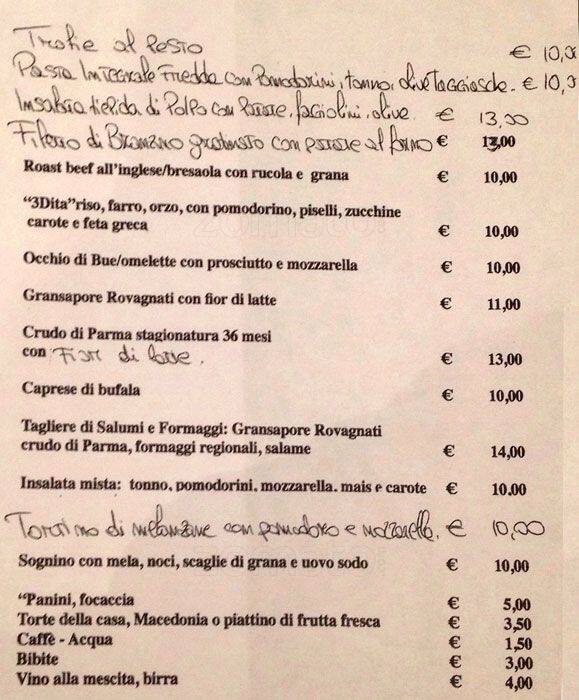 Trofie al Pesto € 10,0
Pasta Integrale Fredda con Pomodorini, tonno, olive Taggiasche. € 10,0
Insalata tiepida di Polpo con Patate, fagiolini, olive. € 13,00
Filetto di Branzino gratinato con patate al forno € 13,00
Roast beef all'inglese/bresaola con rucola e grana € 10,00
“3Dita”riso, farro, orzo, con pomodorino, piselli, zucchine
carote e feta greca € 10,00
Occhio di Bue/omelette con prosciutto e mozzarella € 10,00
Gransapore Rovagnati con fior di latte € 11,00
Crudo di Parma stagionatura 36 mesi
con Fior di latte. € 13,00
Caprese di bufala € 10,00
Tagliere di Salumi e Formaggi: Gransapore Rovagnati
crudo di Parma, formaggi regionali, salame € 14,00
Insalata mista: tonno, pomodorini, mozzarella, mais e carote € 10.00
Tortino di melanzane con pomodoro e mozzarella. € 10,00
Sognino con mela, noci, scaglie di grana e uovo sodo € 10,00
“Panini, focaccia € 5,00
Torte della casa, Macedonia o piattino di frutta fresca € 3,50
Caffè - Acqua € 1,50
Bibite € 3,00
Vino alla mescita, birra € 4,00